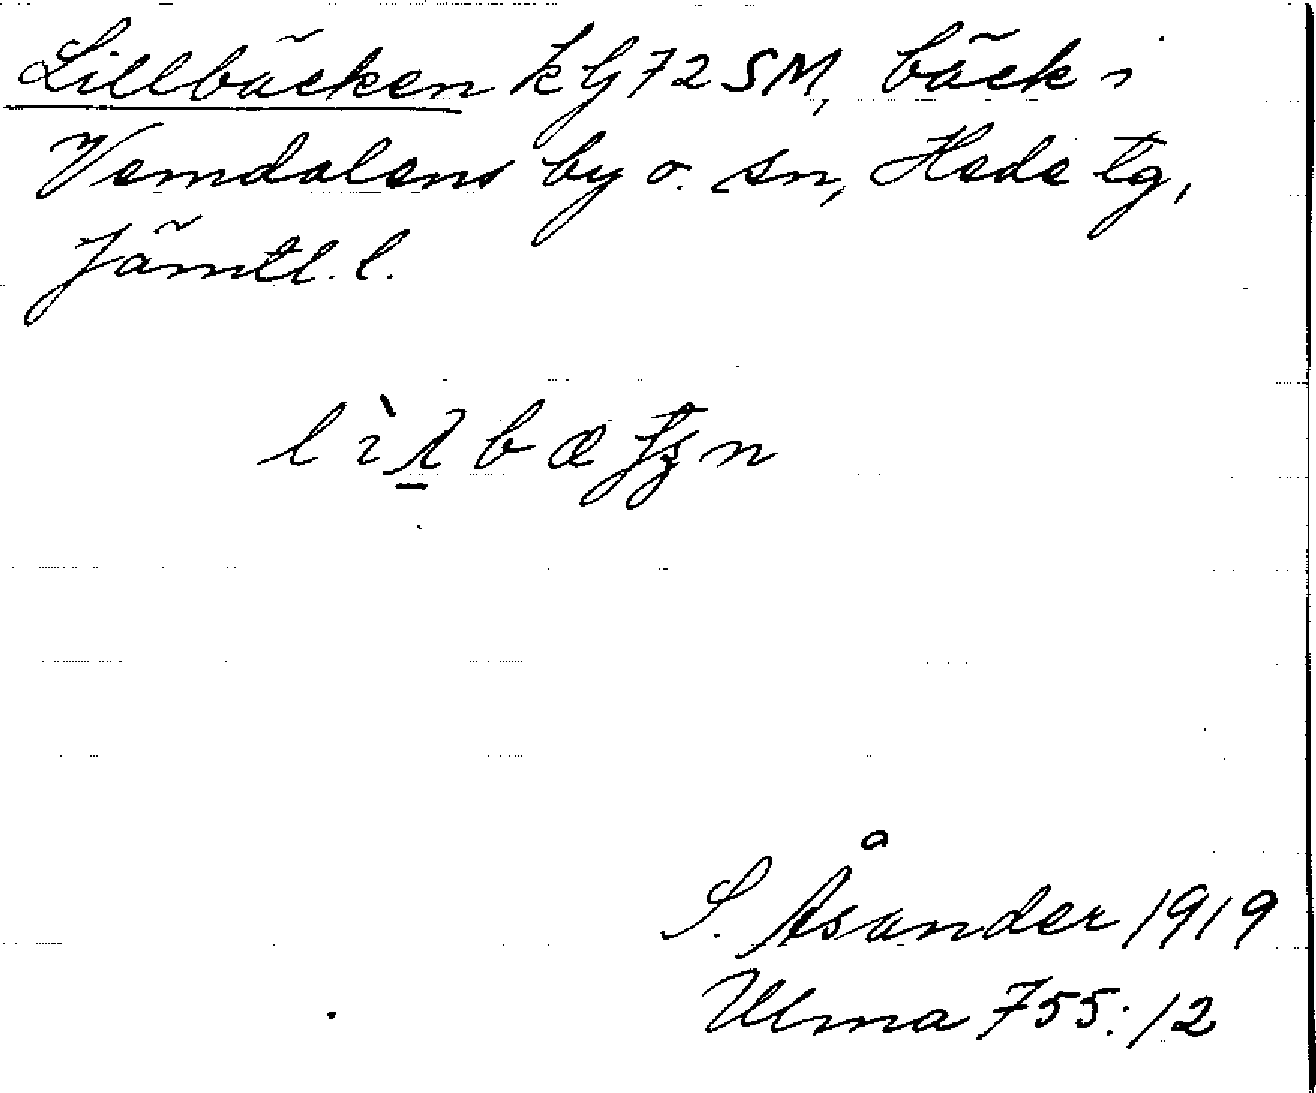 Lillbäcken kG72SM, bäck i
Vemdalens by o. sn, Hede tg,
Jämtl. l.
S. Åsander 1919
Ulma 755:12